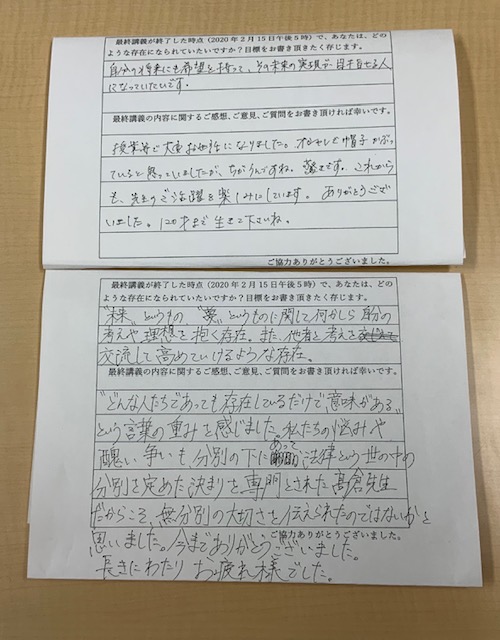 最終講義が終了した時点（2020年2月15日午後5時）で、あなたは、どの
ような存在になられていたいですか？目標をお書き頂きたく存じます。
自分の将来にも希望を持って、その未来の実現が目指せる人
になっていたいです。
最終講義の内容に関するご感想、ご意見、ご質問をお書き頂ければ幸いです。
授業等で大変お世話になりました。オシャレで帽子かぶっ
ていると思っていましたが、ちがうんですね。驚きです。これから
も、先生のご活躍を楽しみにしています。ありがとうござ
いました。120才まで生きて下さいね。
ご協力ありがとうございました。
最終講義が終了した時点（2020年2月15日午後5時）で、あなたは、どの
ような存在になられていたいですか？目標をお書き頂きたく存じます。
"未来"というもの "夢"というものに関して何かしら自分の
考えや理想を抱く存在。また、他者と考えを
交流して高めていけるような存在。
最終講義の内容に関するご感想、ご意見、ご質問をお書き頂ければ幸いです。
"どんな人たちであっても存在しているだけで意味がある"
という言葉の重みを感じました。私たちの悩みや
醜い争いも、分別の下にあって 法律という世の中の
分別を定めた決まりを専門とされた髙倉先生
だからこそ、無分別の大切さを伝えられたのではないかと
ご協力ありがとうございました。
思いました。今までありがとうございました。
長きにわたり お疲れ様でした。